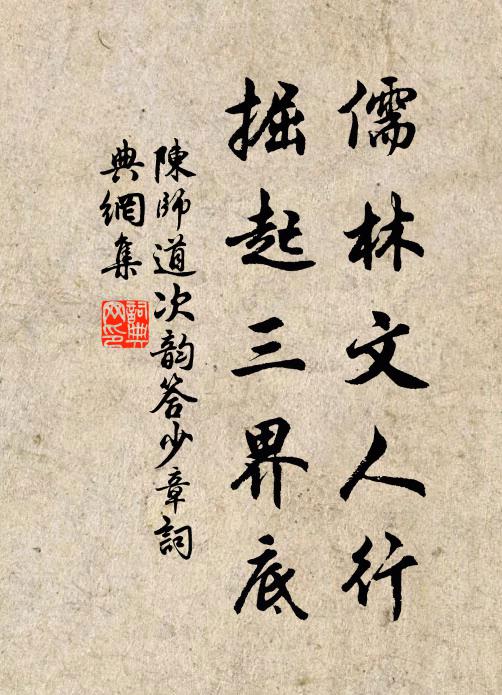 儒林文人行
掘起三界底
陳師道次韵答少章詞
典網集
詞典
网印